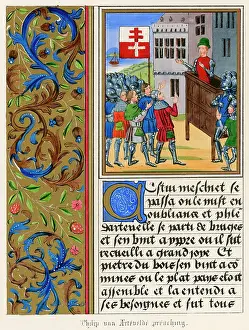 Cestui meschnet se
passa on le mist en
oubliance et phle
dartevelle se parti de bruges
et sen vint a ypre ou il fut
recueilli a grand joye. Et
pietre du bois sen vint a co
mines ou le plat pays eloit
assemble et la entendi a
ses besongnes et fut tous
Philip van Artevelde preaching.